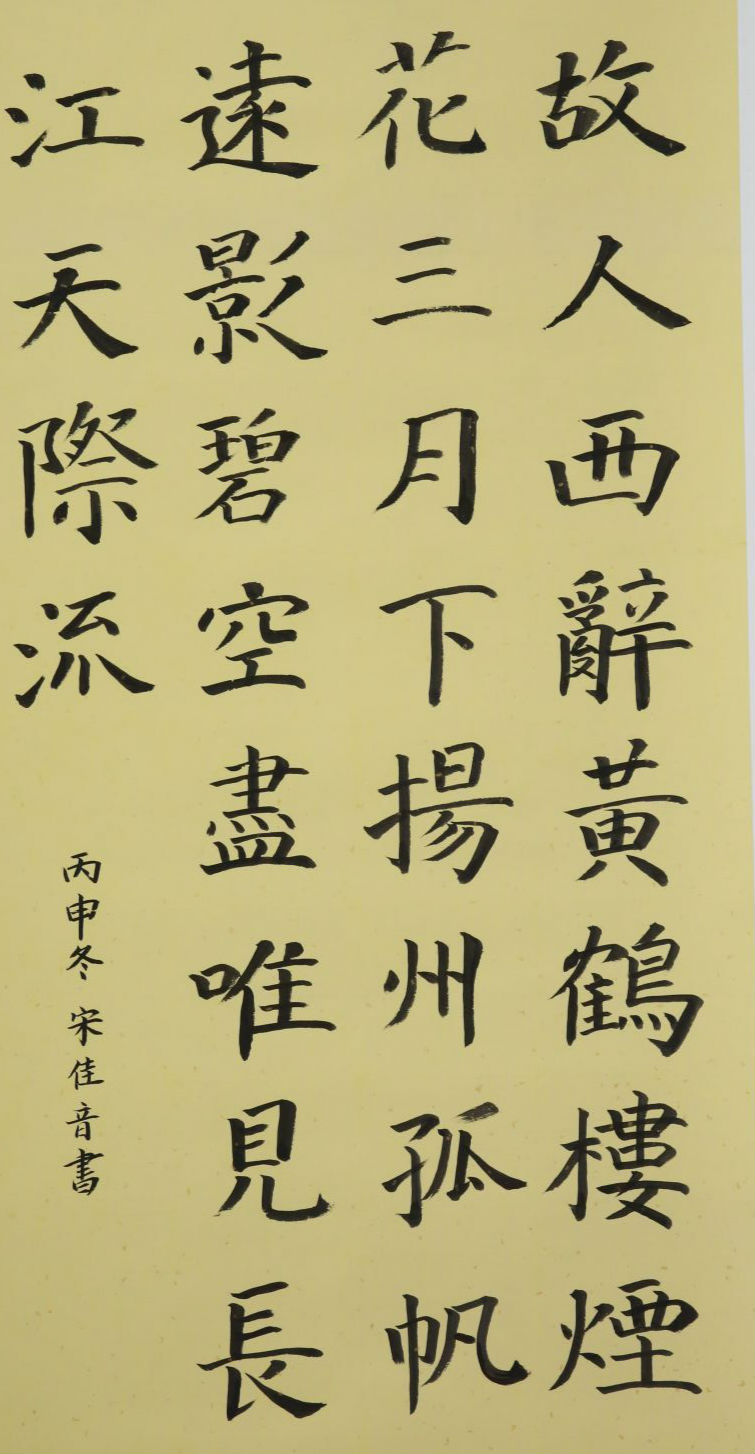 故人西辭黃鶴樓煙
花三月下揚州孤帆
遠影碧空盡唯見長
江天際流
丙申冬 宋佳音書